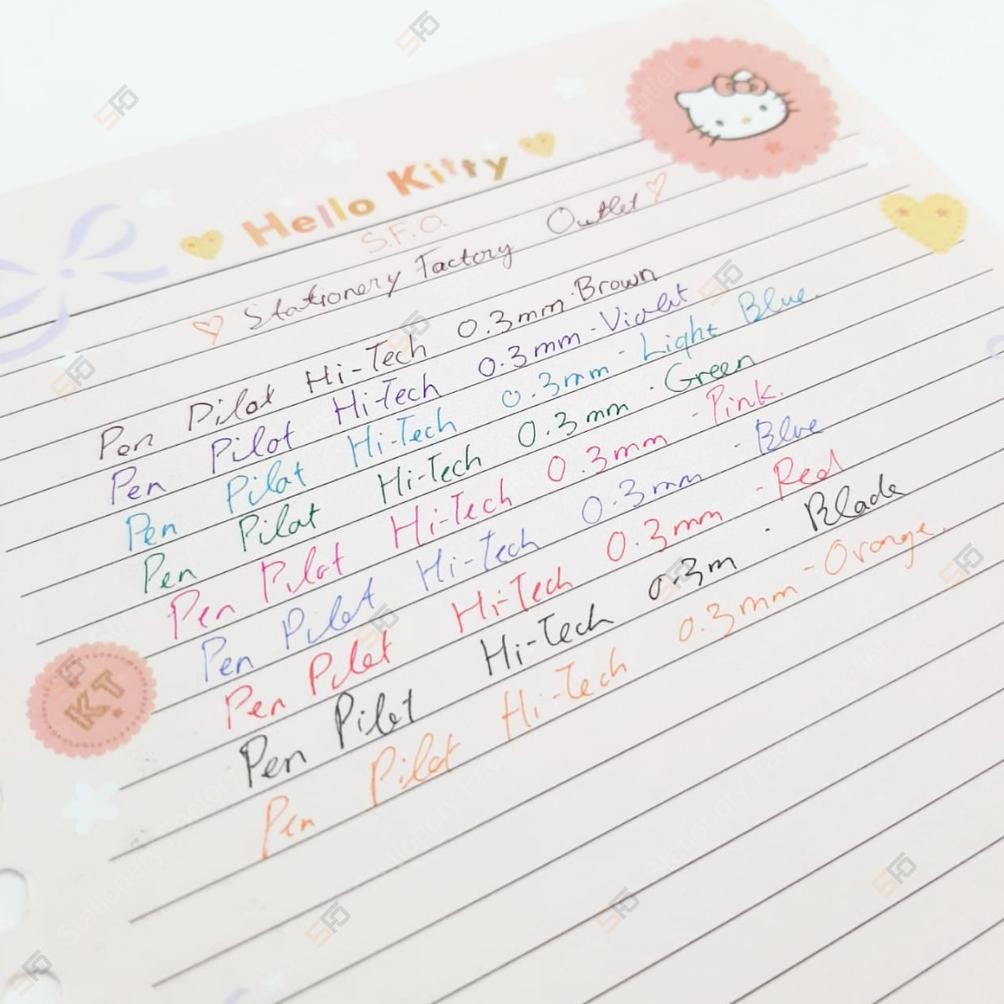 Hello Kitty
S.F.O.
Stationery Factory Outlet
Pen Pilot Hi-Tech 0.3mm. Brown
Pen Pilot Hi-Tech 0.3mm - Violet
Pen Pilot Hi-Tech 0.3mm - Light Blue.
Pen Pilot Hi-Tech 0.3mm . Green
Pen Pilot Hi-Tech 0.3mm - Pink.
Pen Pilot Hi-Tech 0.3mm - Blue
Pen Pilot Hi-Tech 0.3mm - Red
Pen Pilot Hi-Tech 0.3m . Black
Pen Pilot Hi-Tech 0.3mm - Orange.
KT
SFO